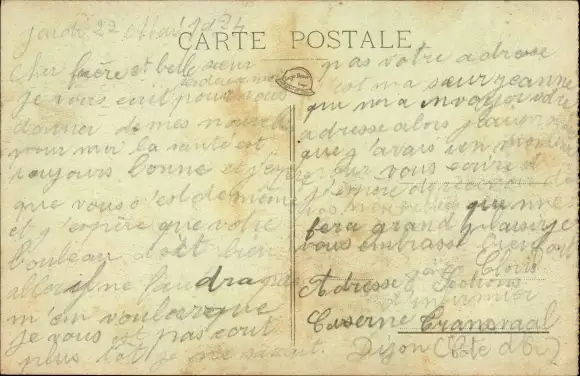 Jeudi 22 Mai 1924
CARTE POSTALE
Cher frère et belle sœur
je vous ecrit pour vous
donner de mes nouvelles
pour moi la santé est
toujours bonne et j'espère
que vous s'est de même
et j'espère que votre
bouleau doit bien
aller il ne faudra pas
m'en vouloir que
je vous est pas écrit
plus tôt je ne savait
pas votre adresse
est ma sœur jeanne
qui m'a invoyer votre
adresse alors
que j'avais un moment
pour vous ecrire
qui me
fera grand plaisir je
vous embrasse bien fort
Clovis
Adresse Section
infirmier
Caserne Transvaal
Dijon (Côte d'Or)